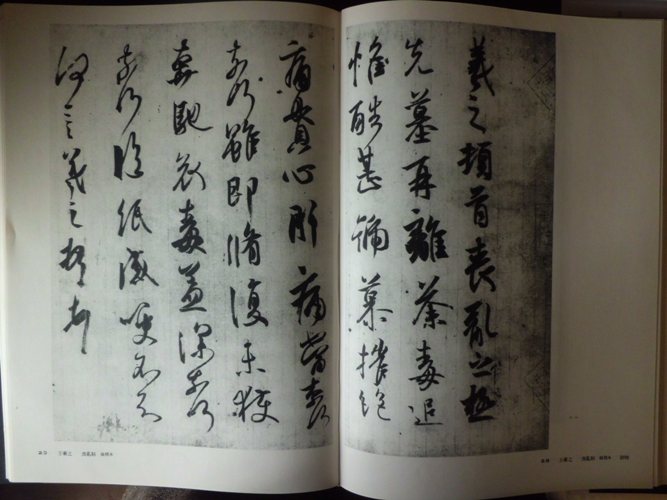 羲之頓首喪亂之極
先墓再離荼毒追
惟酷甚號慕摧絶
痛貫心肝痛當奈何
奈何雖即脩復未獲
奔馳哀毒益深奈何
奈何臨紙感哽不知
何言羲之頓首頓首
王羲之 喪亂帖
王羲之 喪亂帖